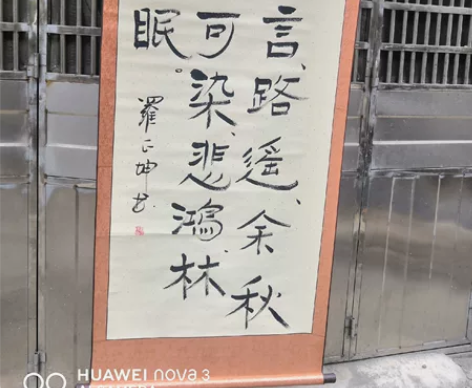 言、路遥、余秋
可染、悲鸿、林
眠。
羅正坤书
HUAWEI nova 3